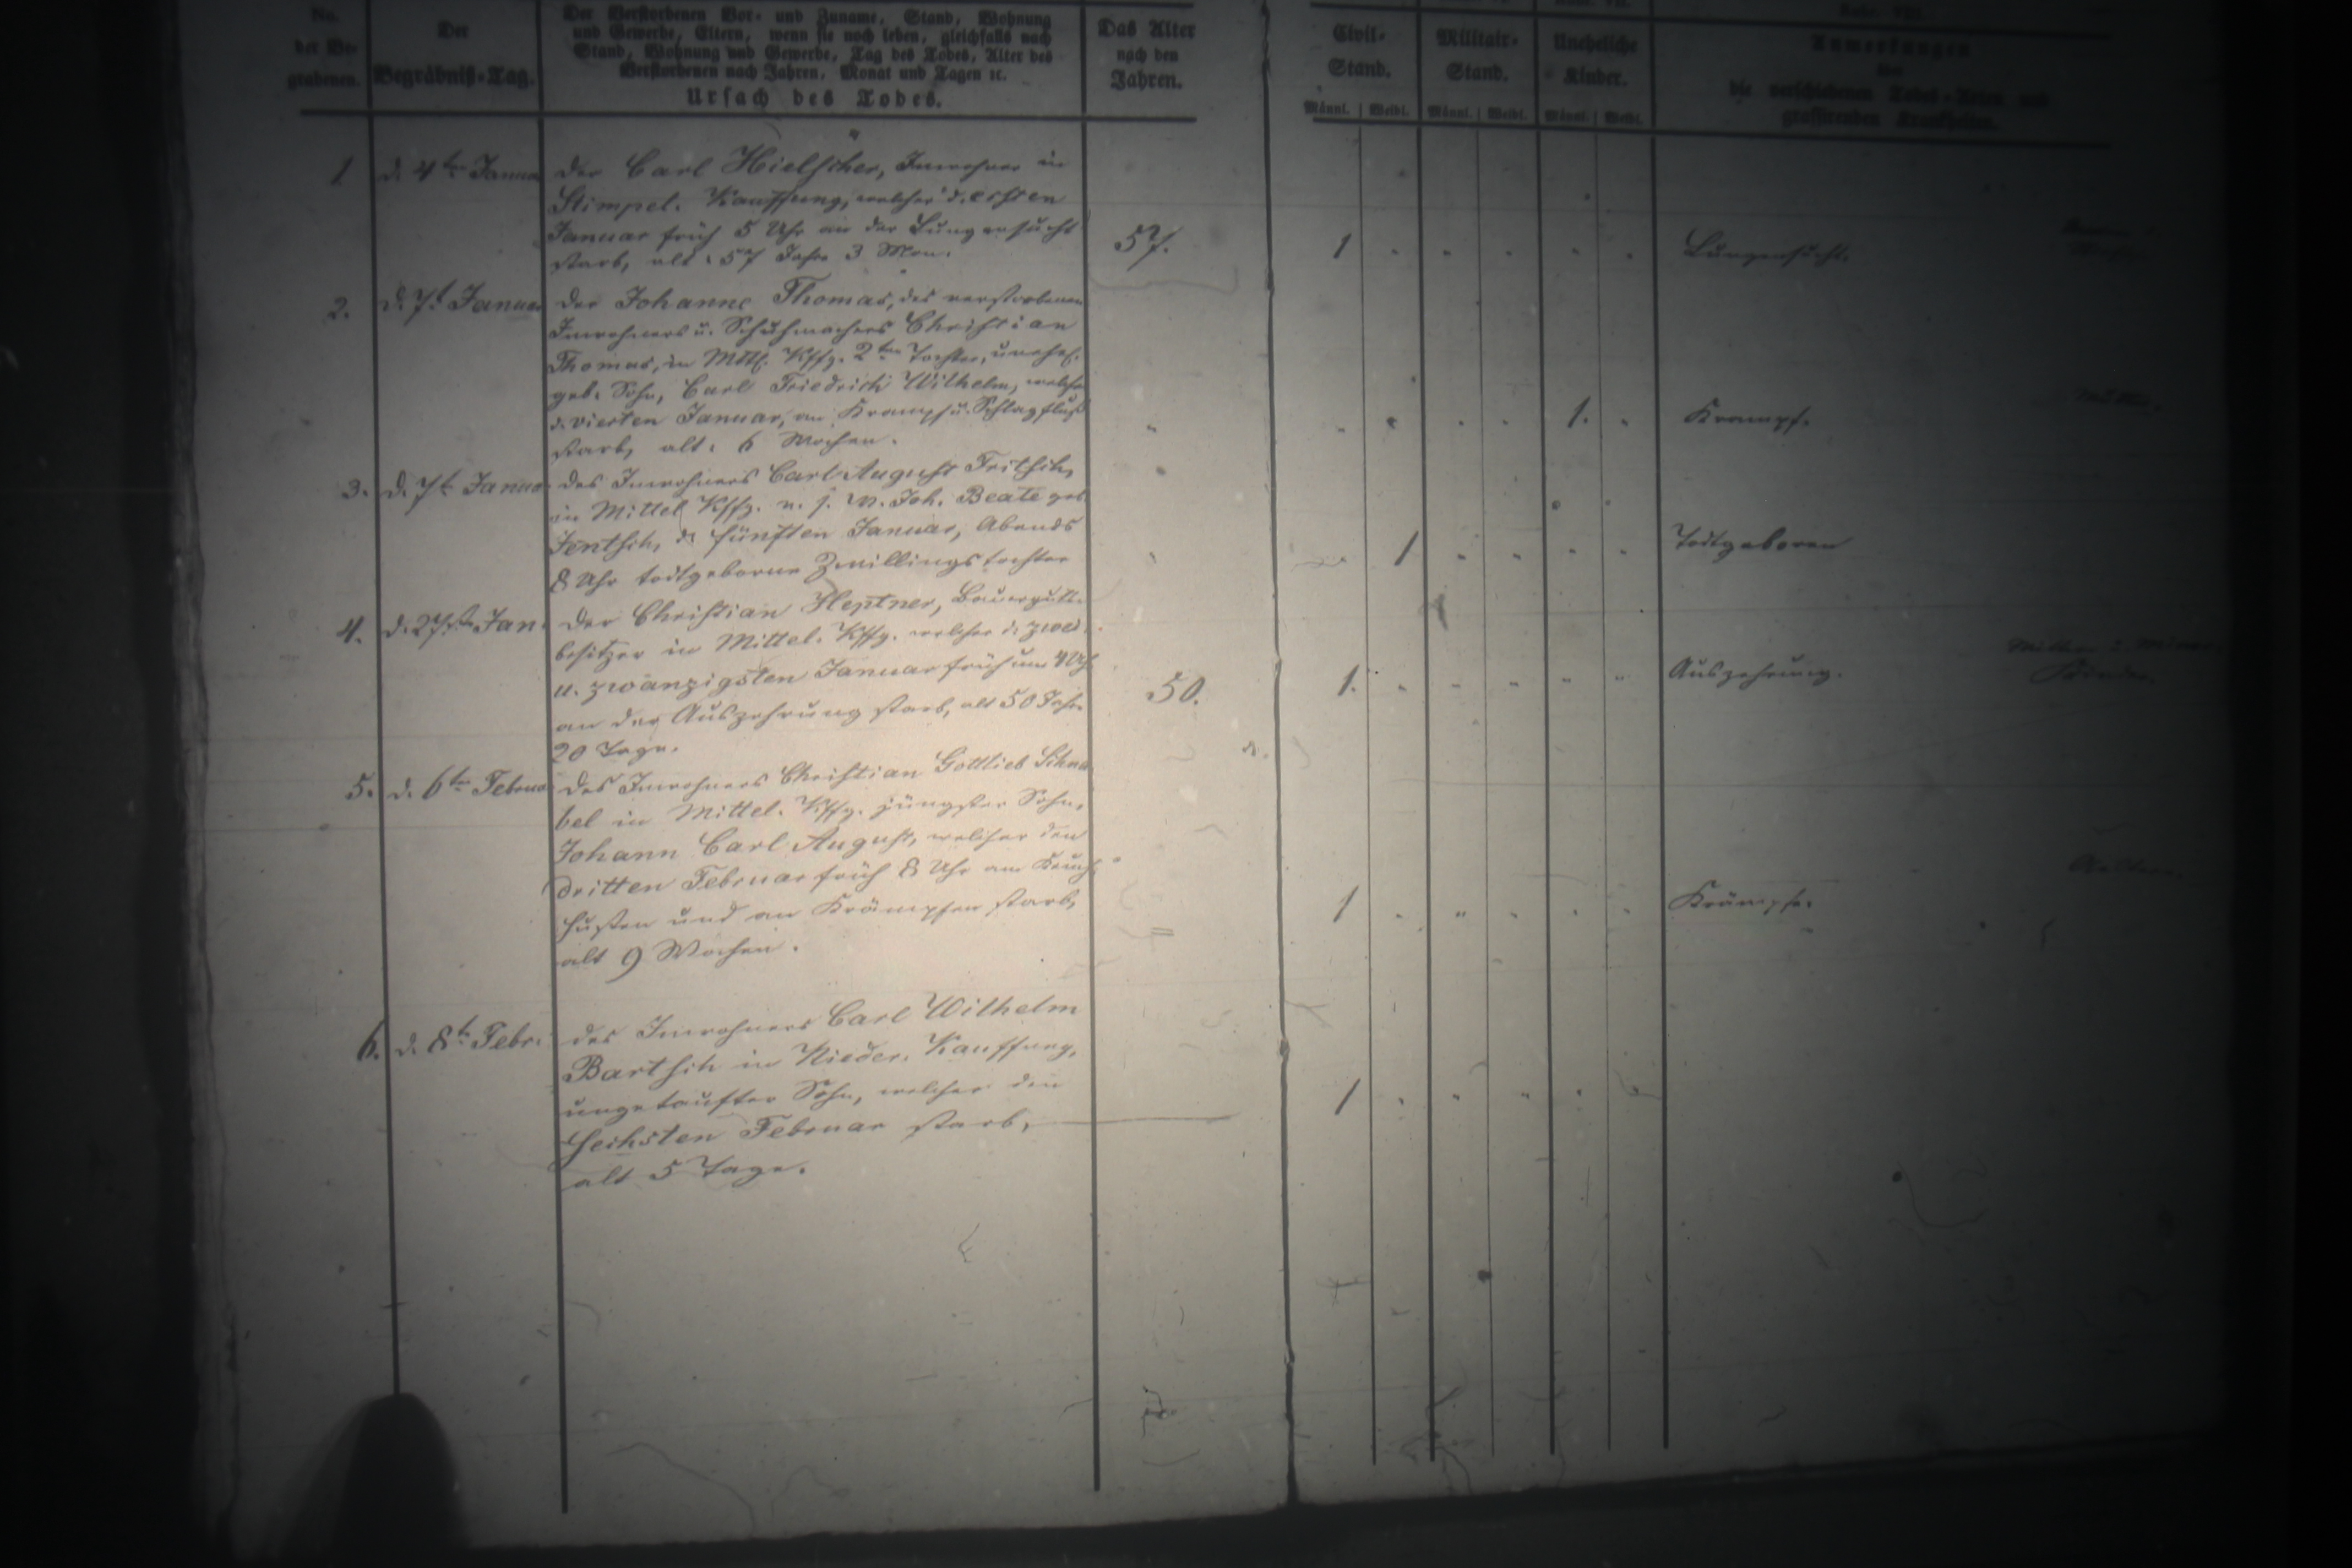 No.
der Be-
grabenen.
Der
Begräbniß-Tag.
Der Verstorbenen Vor- und Zuname, Stand, Wohnung
und Gewerbe, Eltern, wenn sie noch leben, gleichfalls nach
Stand, Wohnung und Gewerbe, Tag des Todes, Alter des
Verstorbenen nach Jahren, Monat und Tagen ꝛc.
Ursach des Todes.
Das Alter
nach den
Jahren.
Civil-
Stand.
Militair-
Stand.
Uneheliche
Kinder.
Anmerkungen
über
die verschiedenen Todes-Arten und
grassirenden Krankheiten.
Männl. Weibl. Männl. Weibl. Männl. Weibl.
1 d. 4ten Januar
Der Carl Hielscher, Inwohner in
Stimpel. Kauffung, welcher d. ersten
Januar früh 5 Uhr an der Lungensucht
starb, alt: 57 Jahr 3 Mon.
57. 1 Lungensucht.
2. d. 7t Januar
Der Johanne Thomas, des verstorbenen
Inwohners u. Schuhmachers Christian
Thomas, in Mttl. Kffg. 2ten Tochter, unehel.
geb. Sohn, Carl Friedrich Wilhelm, welcher
d. vierten Januar, an Krampf u. Schlagfluß
starb, alt: 6 Wochen.
1. Krampf.
3. d. 7t Januar
Des Inwohners Carl August Fritsch,
in Mittel Kffg. u. s. W. Joh. Beate geb
Jentsch, d. fünften Januar, Abends
8 Uhr todtgeborne Zwillingstochter
1 Todtgeboren
4. d. 27st. Jan.
Der Christian Heptner, Bauerguts-
besitzer in Mittel. Kffg. welcher d. zwei
u. zwanzigsten Januar früh um 4 Uhr
an der Auszehrung starb, alt 50 Jahr
20 Tage.
50. 1. Auszehrung.
5. d. 6ten Februar
Des Inwohners Christian Gottlieb Schna
bel in Mittel. Kffg. jüngster Sohn,
Johann Carl August, welcher den
dritten Februar früh 8 Uhr am Keuch
husten und an Krämpfen starb,
alt 9 Wochen.
1 Krämpfe.
6. d. 8t Febr.
Des Inwohners Carl Wilhelm
Bartsch in Nieder. Kauffung,
ungetaufter Sohn, welcher den
sechsten Februar starb,
alt 5 Tage.
1